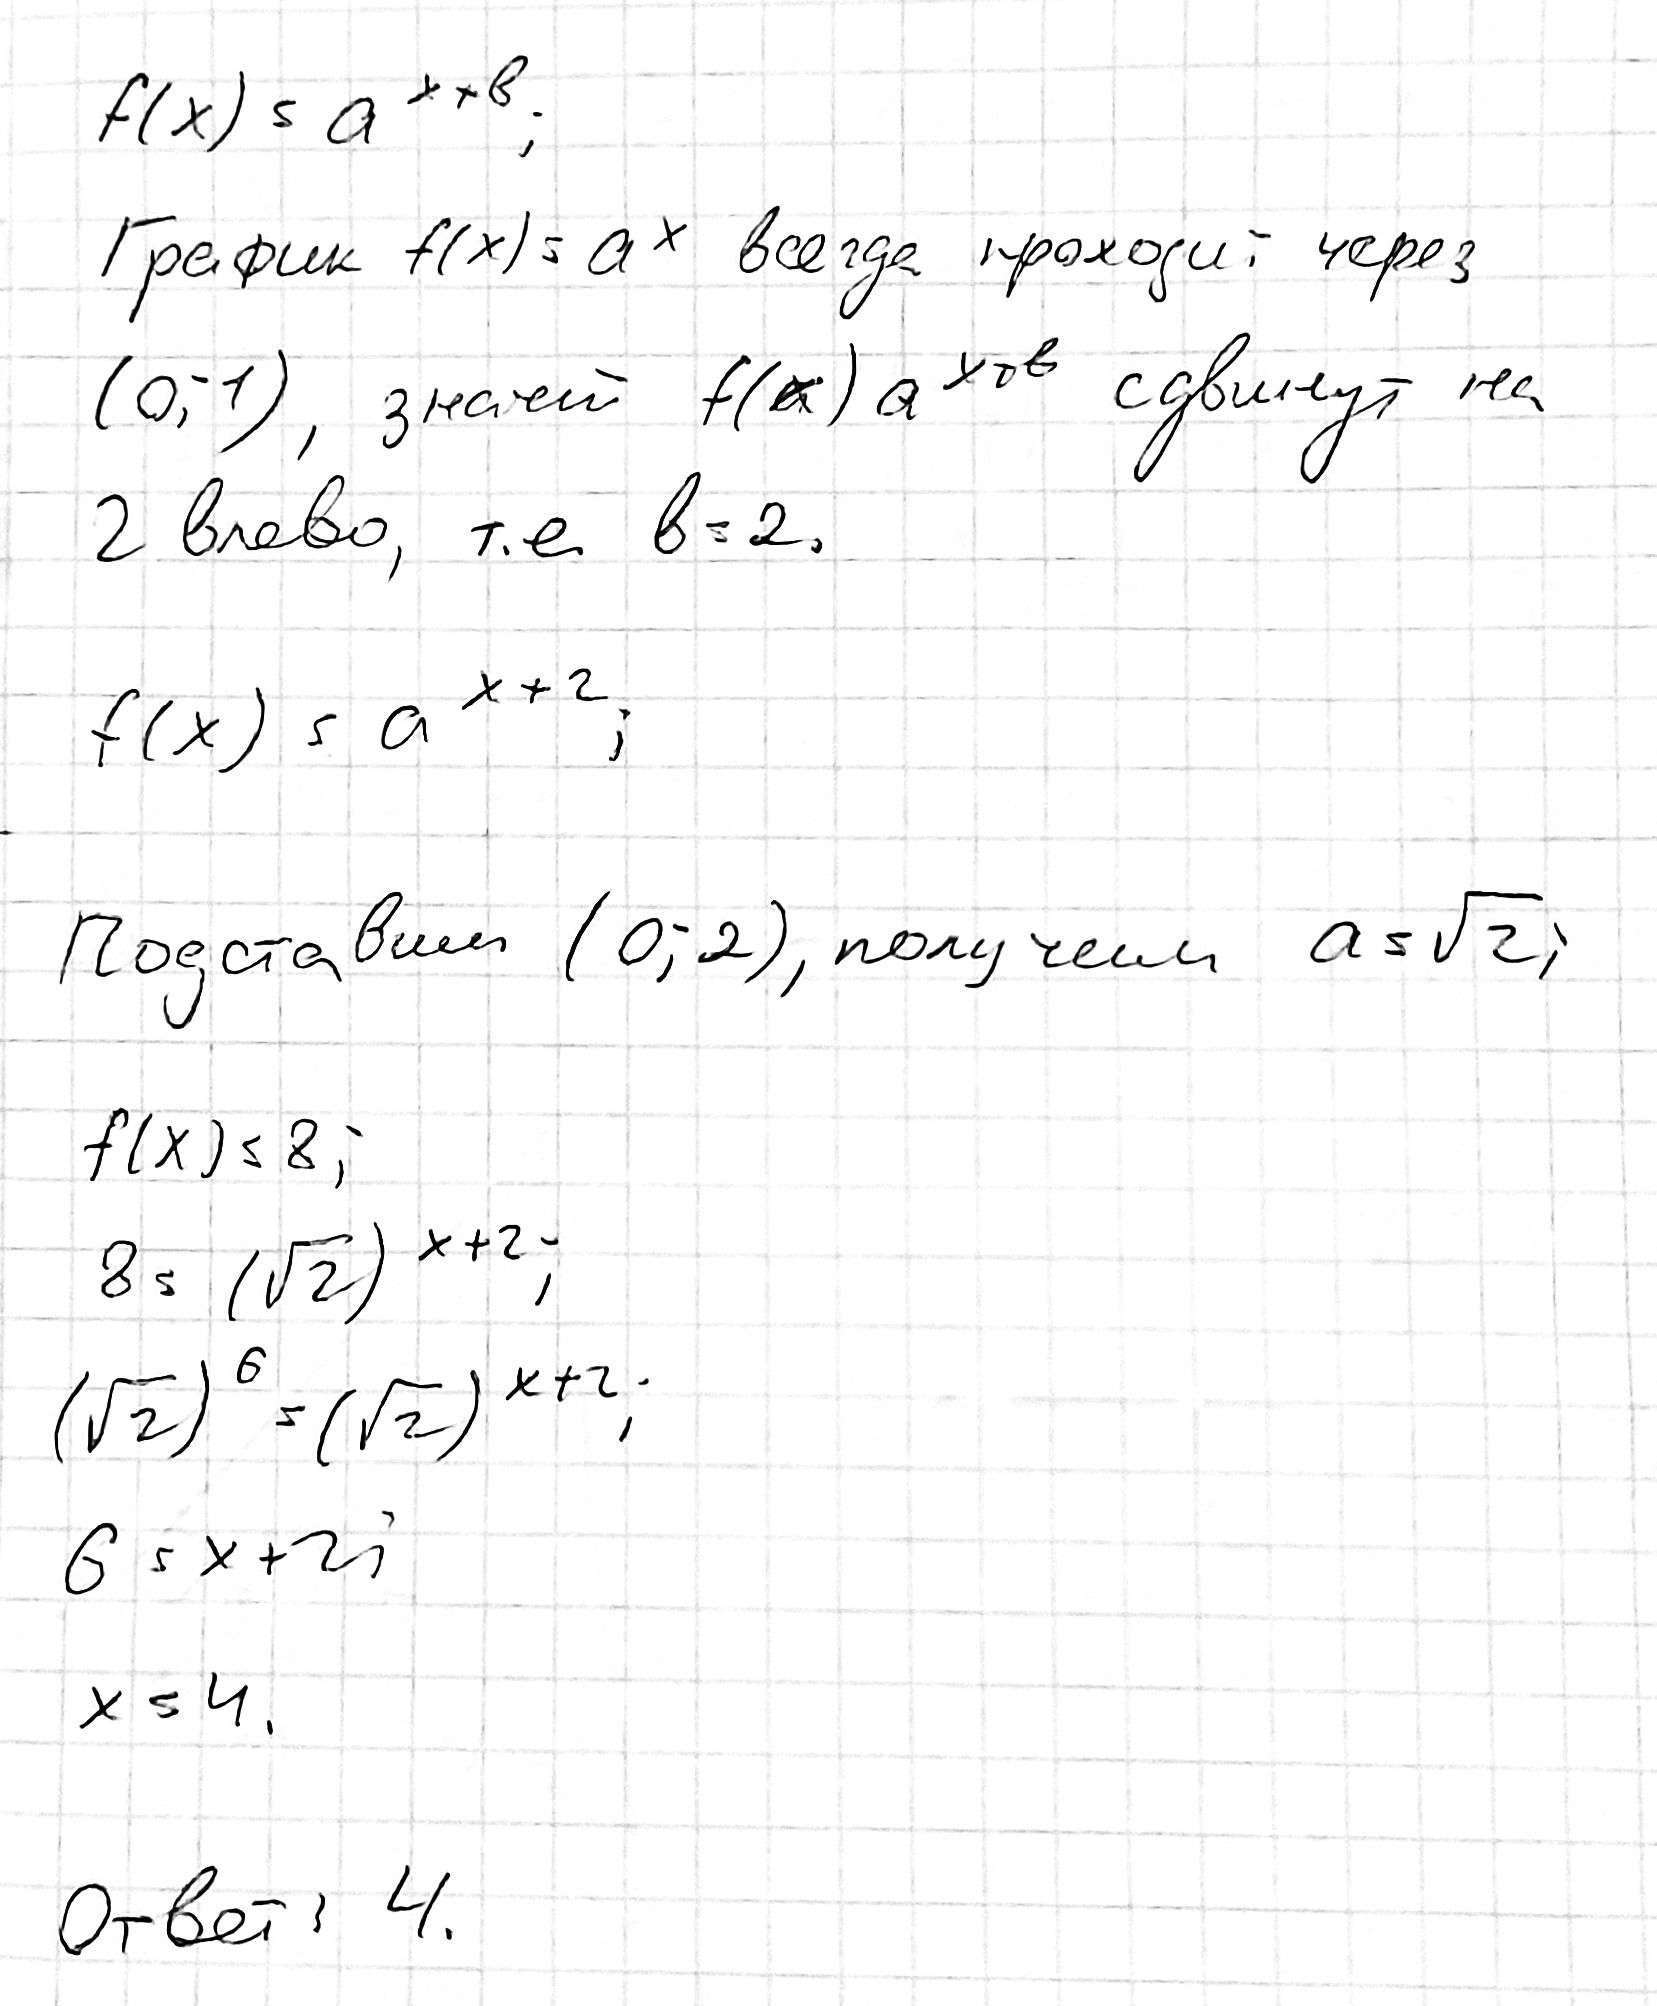 f(x) = a^{x+b};
График f(x) = a^x всегда проходит через
(0; 1), значит f(x) a^{x+b} сдвинут на
2 влево, т.е. b = 2.
f(x) = a^{x+2};
Подставим (0; 2), получим a = √2;
f(x) = 8;
8 = (√2)^{x+2};
(√2)^6 = (√2)^{x+2};
6 = x + 2;
x = 4.
Ответ: 4.